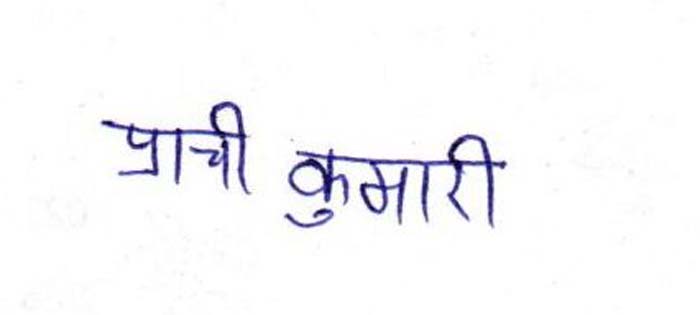 प्राची कुमारी